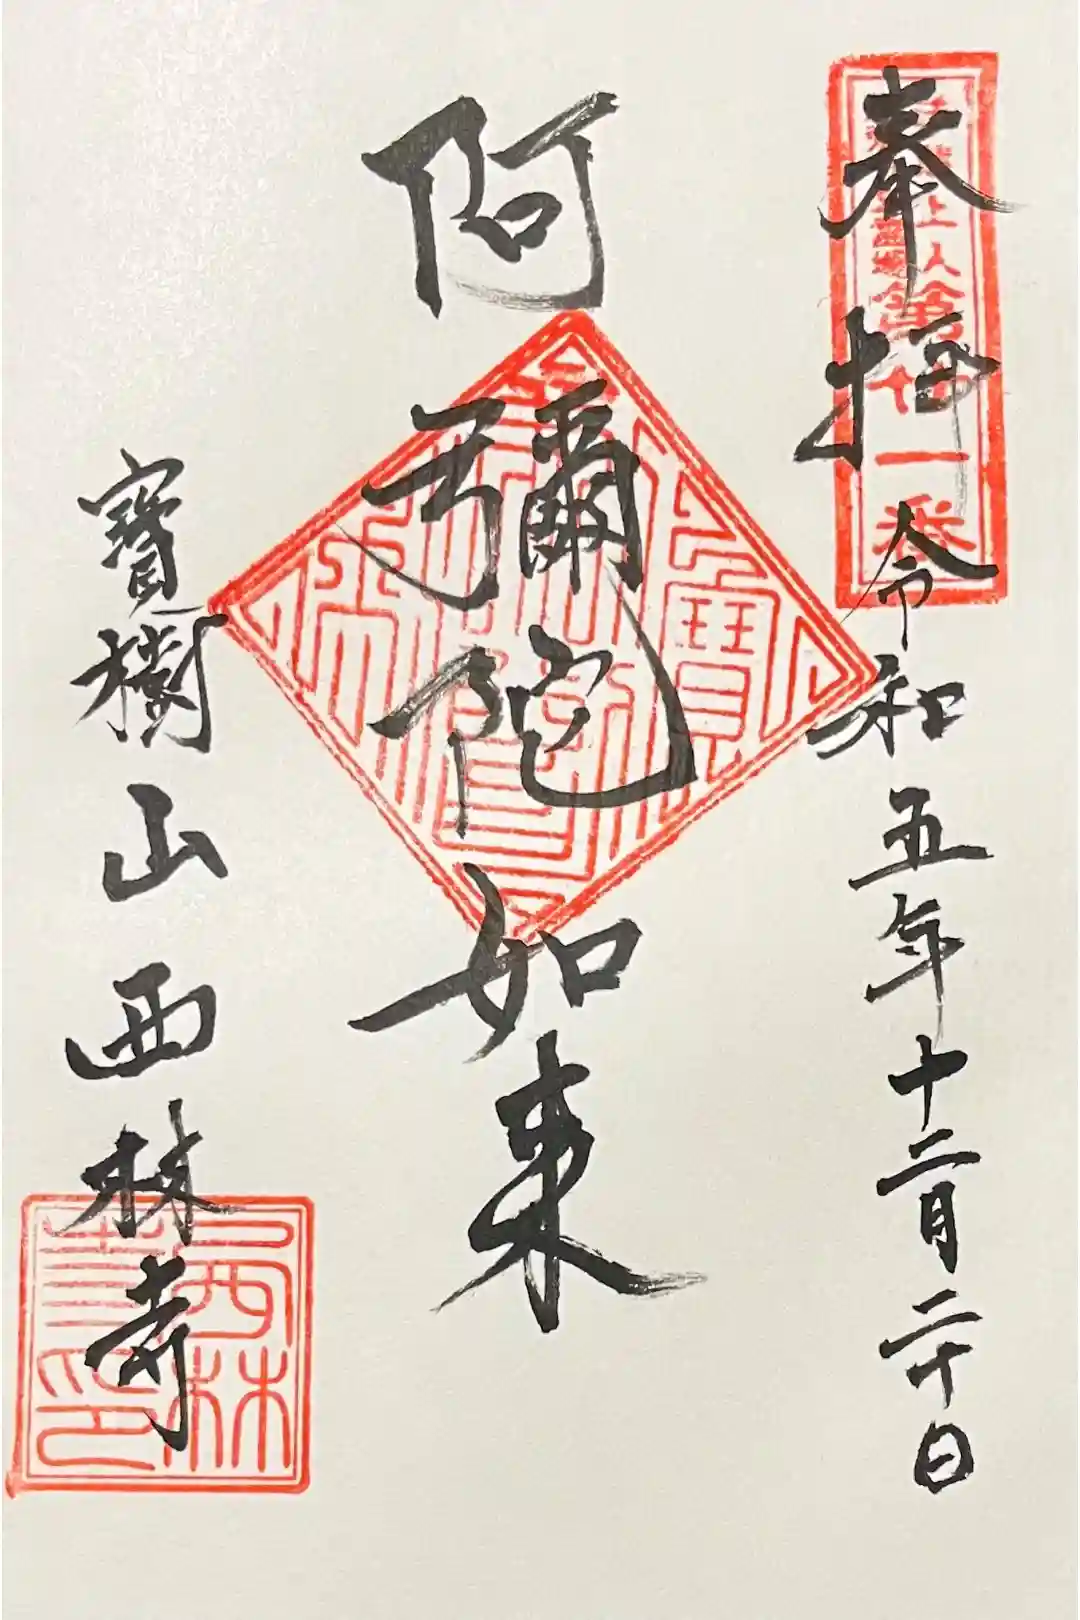 奉拝
令和五年十二月二十日
阿彌陀如来
寶樹山西林寺
上人
第廿一番
西林
印